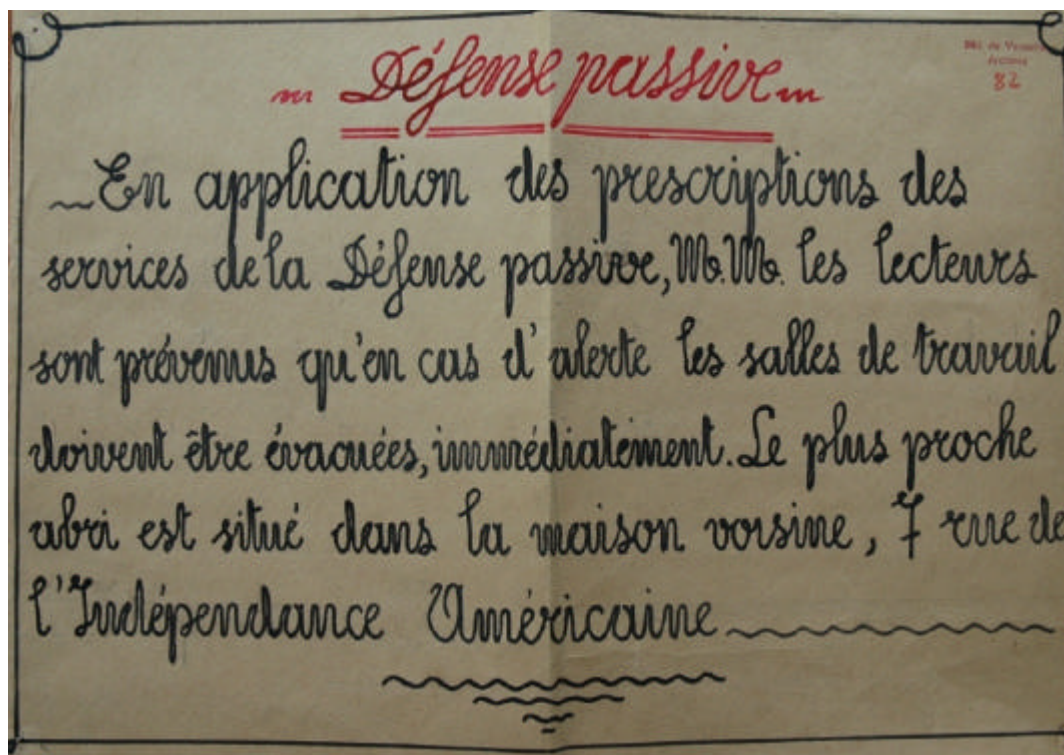 Défense passive
En application des prescriptions des
services de la Défense passive, M.M. les lecteurs
sont prévenus qu'en cas d'alerte les salles de travail
doivent être évacuées, immédiatement. Le plus proche
abri est situé dans la maison voisine, 7 rue de
l'Indépendance Américaine
82